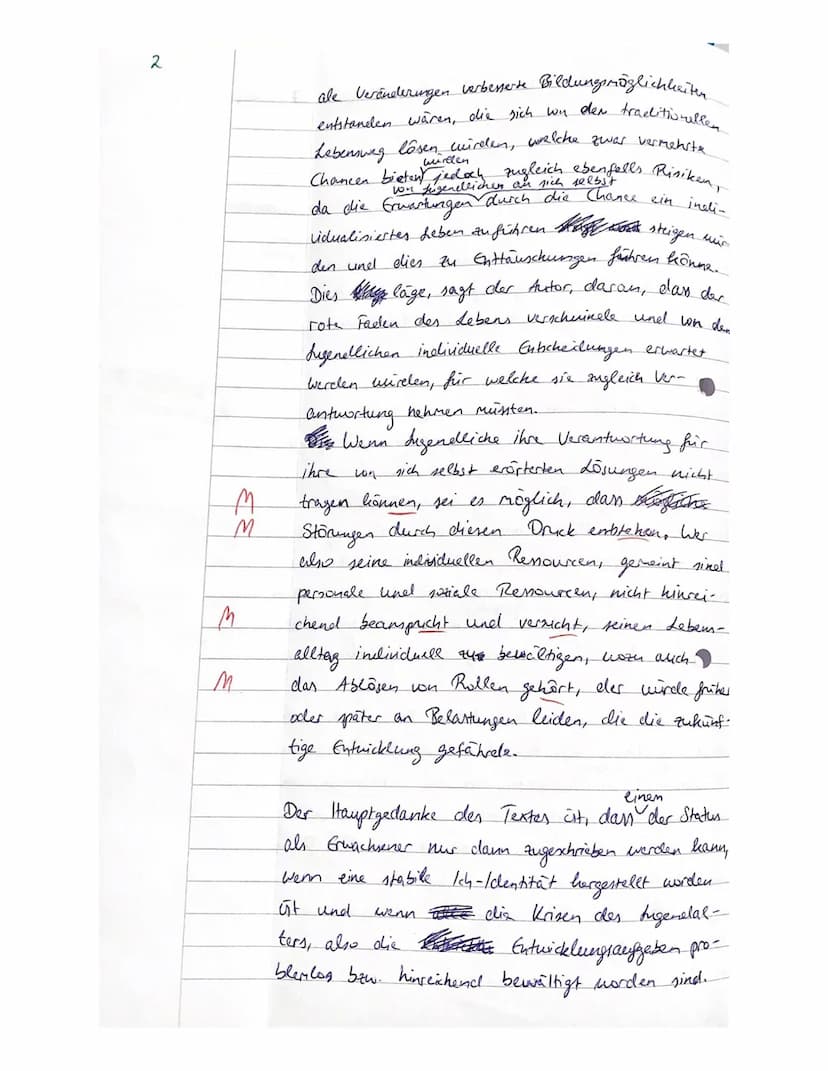 2
ale Veränderungen verbesserte Bildungsmöglichkeiten
entstanden wären, die sich von den traditionellen
Lebensweg lösen würden, welche zwar vermehrte
würden
Chancen bieten jedoch zugleich ebenfalls Risiken,
von Jugendlichen an sich selbst
da die Erwartungen durch die Chance ein indi-
vidualisiertes Leben zu führen steigen wür
den und dies zu Enttäuschungen führen könne.
Dies läge, sagt der Autor, daran, dass der
rote Faden des Lebens verschwinde und von den
Jugendlichen individuelle Entscheidungen erwartet
werden würden, für welche sie zugleich Ver-
antwortung nehmen müssten.
Wenn Jugendliche ihre Verantwortung für
ihre von sich selbst erörterten Lösungen nicht
M tragen können, sei es möglich, dass
M Störungen durch diesen Druck entstehen. Wer
also seine individuellen Ressourcen, gemeint sind
personale und soziale Ressourcen, nicht hinrei-
M chend beansprucht und versucht, seinen Lebens-
alltag individuell zu bewältigen, wozu auch
M das Ablösen von Rollen gehört, der würde früher
oder später an Belastungen leiden, die die zukünf-
tige Entwicklung gefährde.
einen
Der Hauptgedanke des Textes ist, dass der Status
als Erwachsener nur dann zugeschrieben werden kann,
wenn eine stabile Ich-Identität hergestellt worden
ist und wenn die Krisen des Jugendal-
ters, also die Entwicklungsaufgaben pro-
blemlos bzw. hinreichend bewältigt worden sind.